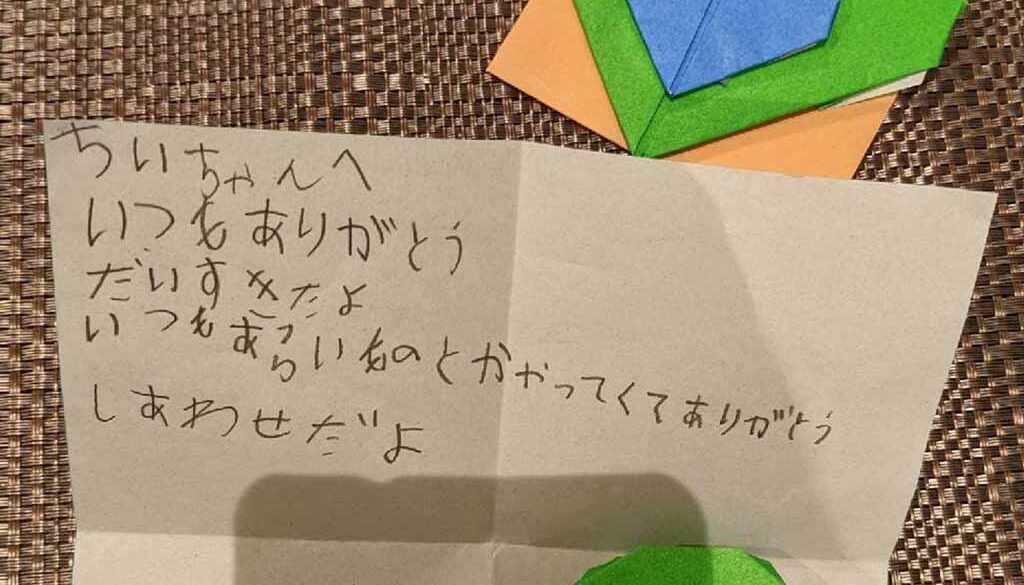 ちいちゃんへ
いつもありがとう
だいすきたよ
いつもあらいものとかやってくてありがとう
しあわせだよ